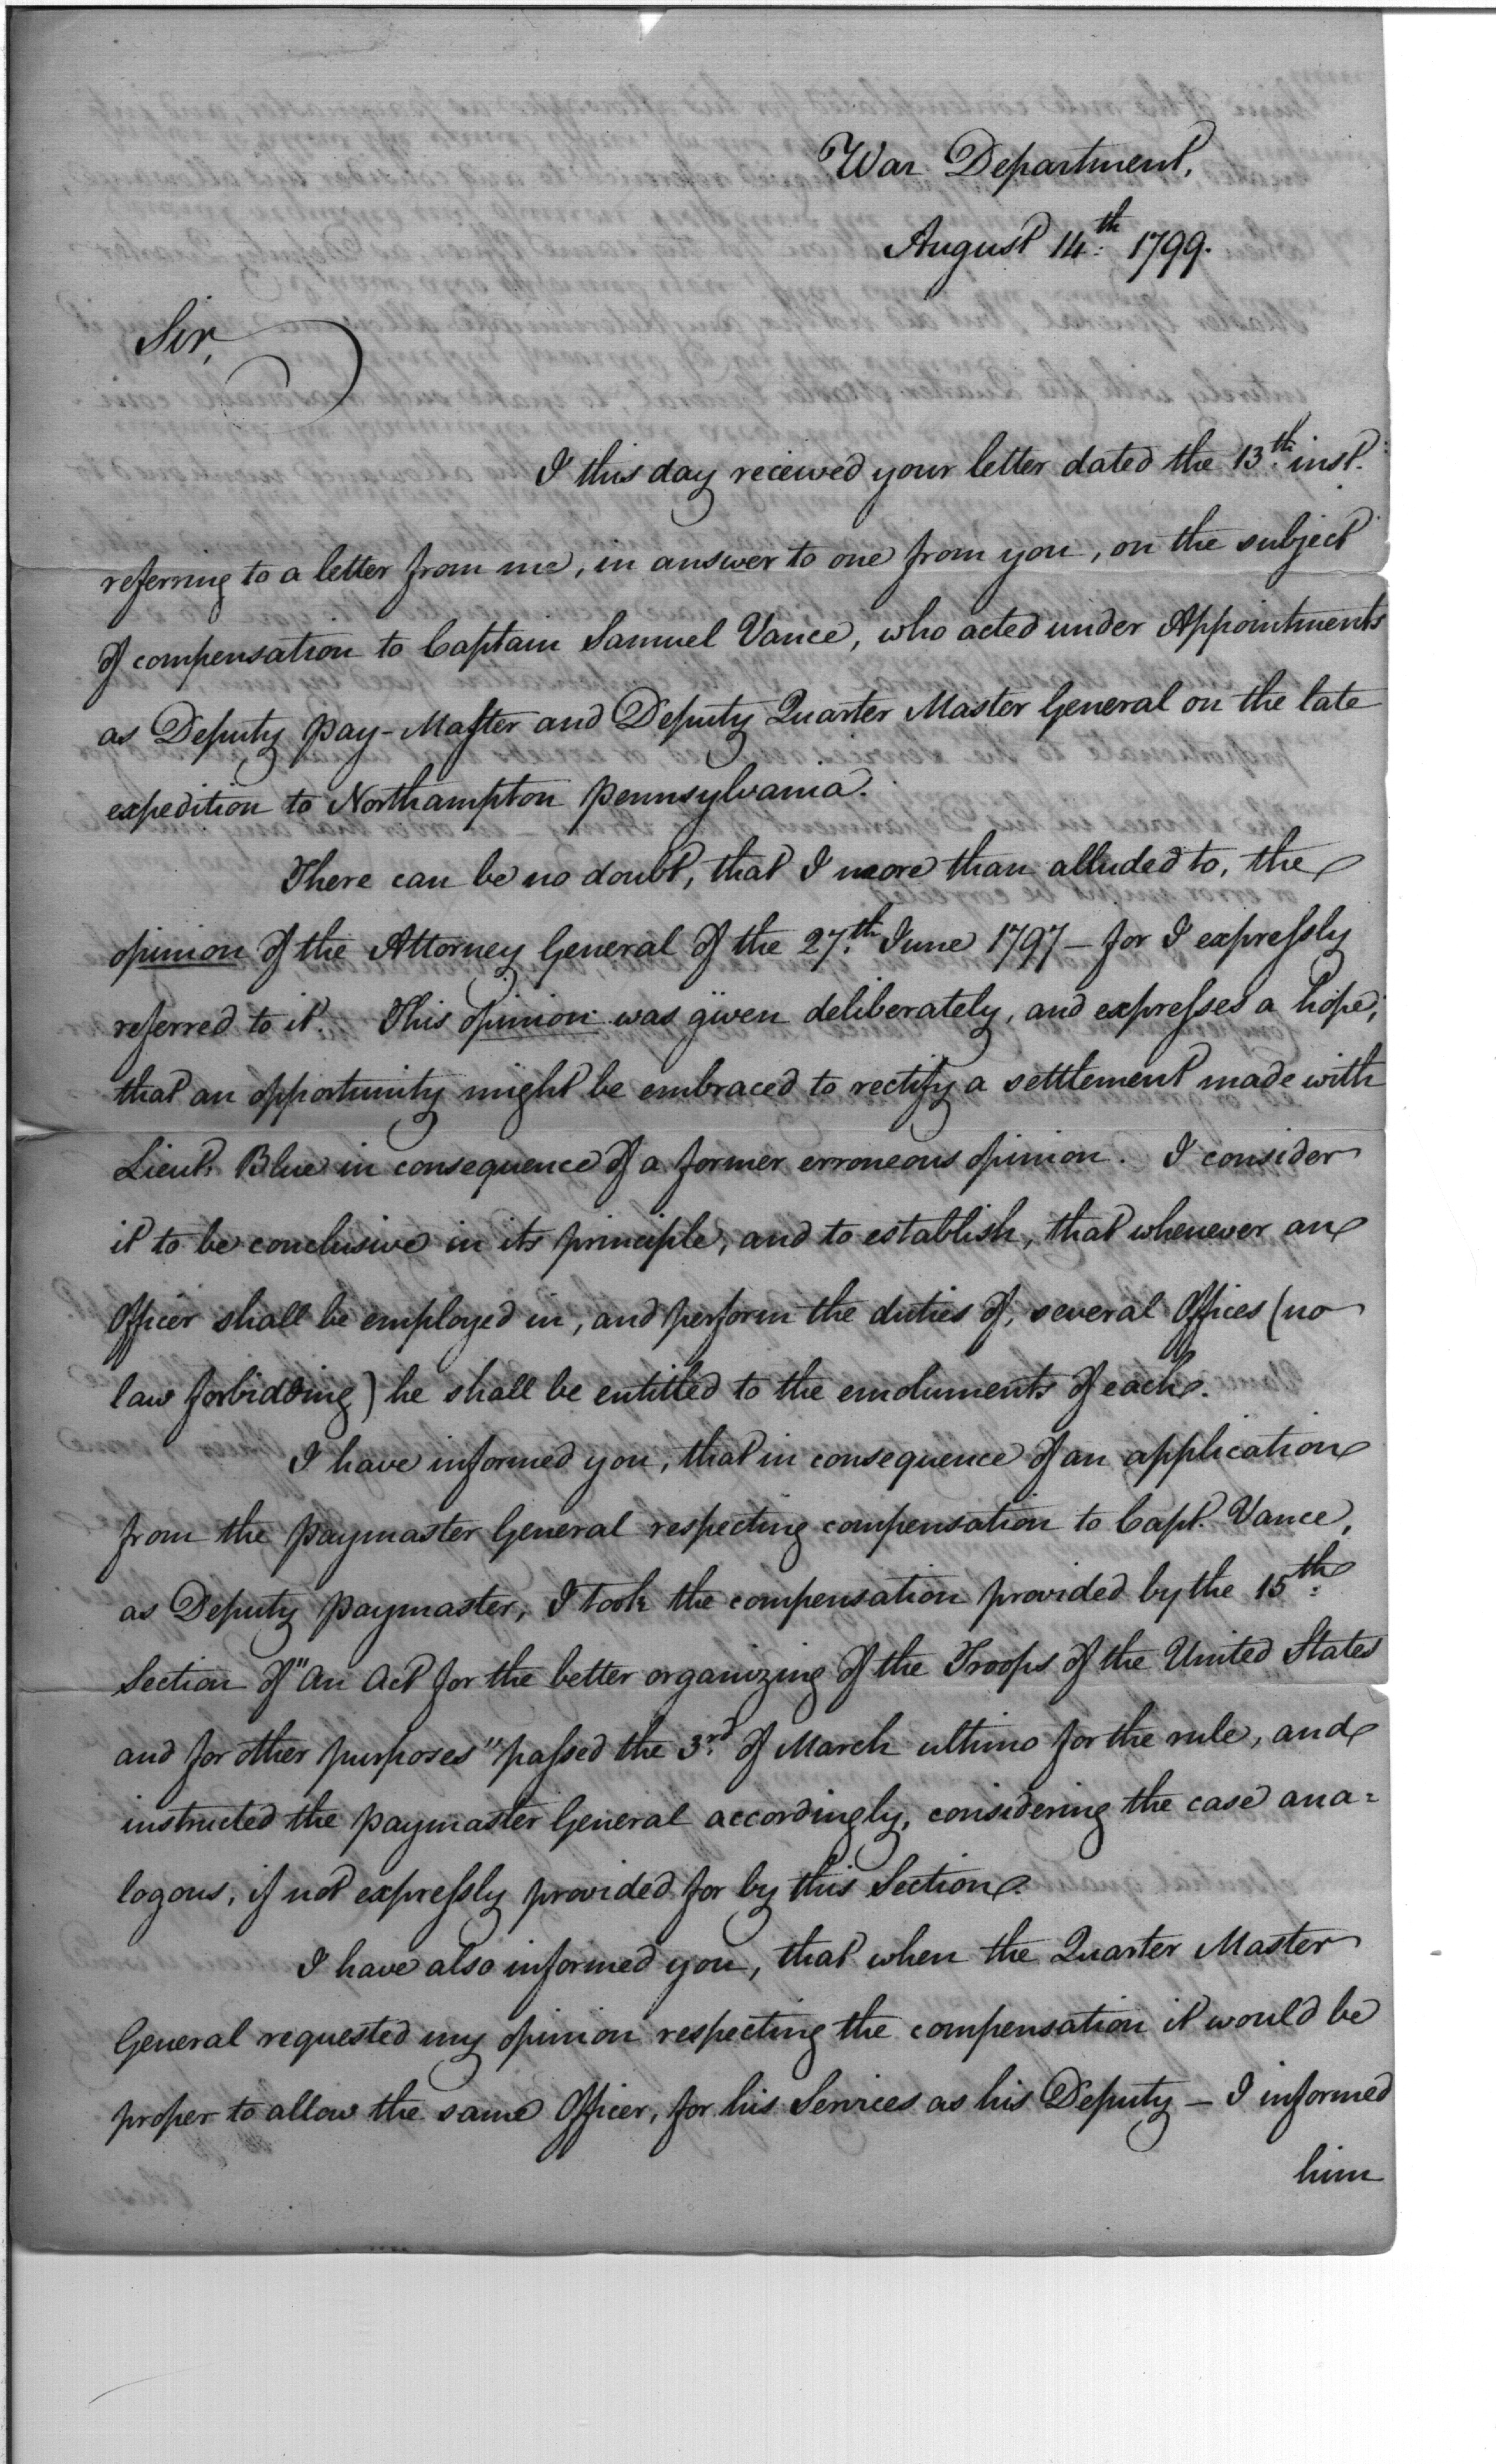 War Department,
August 14th 1799.
Sir,
I this day received your letter dated the 13th inst.
referring to a letter from me, in answer to one from you, on the subject
of compensation to Captain Samuel Vance, who acted under Appointments
as Deputy Pay-Master and Deputy Quarter Master General on the late
expedition to Northampton Pennsylvania.
There can be no doubt, that I more than alluded to, the
opinion of the Attorney General of the 27th June 1797 - for I expressly
referred to it. This opinion was given deliberately, and expresses a hope,
that an opportunity might be embraced to rectify a settlement made with
Lieut. Blue in consequence of a former erroneous opinion. I consider
it to be conclusive in its principle, and to establish, that whenever an
Officer shall be employed in, and perform the duties of, several Offices (no
law forbidding) he shall be entitled to the emoluments of each.
I have informed you, that in consequence of an application
from the Paymaster General respecting compensation to Capt. Vance,
as Deputy Paymaster, I took the compensation provided by the 15th
Section of "An Act for the better organizing of the Troops of the United States
and for other purposes" passed the 3rd of March ultimo for the rule, and
instructed the Paymaster General accordingly, considering the case ana=
logous, if not expressly provided for by this Section.
I have also informed you, that when the Quarter Master
General requested my opinion respecting the compensation it would be
proper to allow the same Officer, for his Services as his Deputy - I informed
him